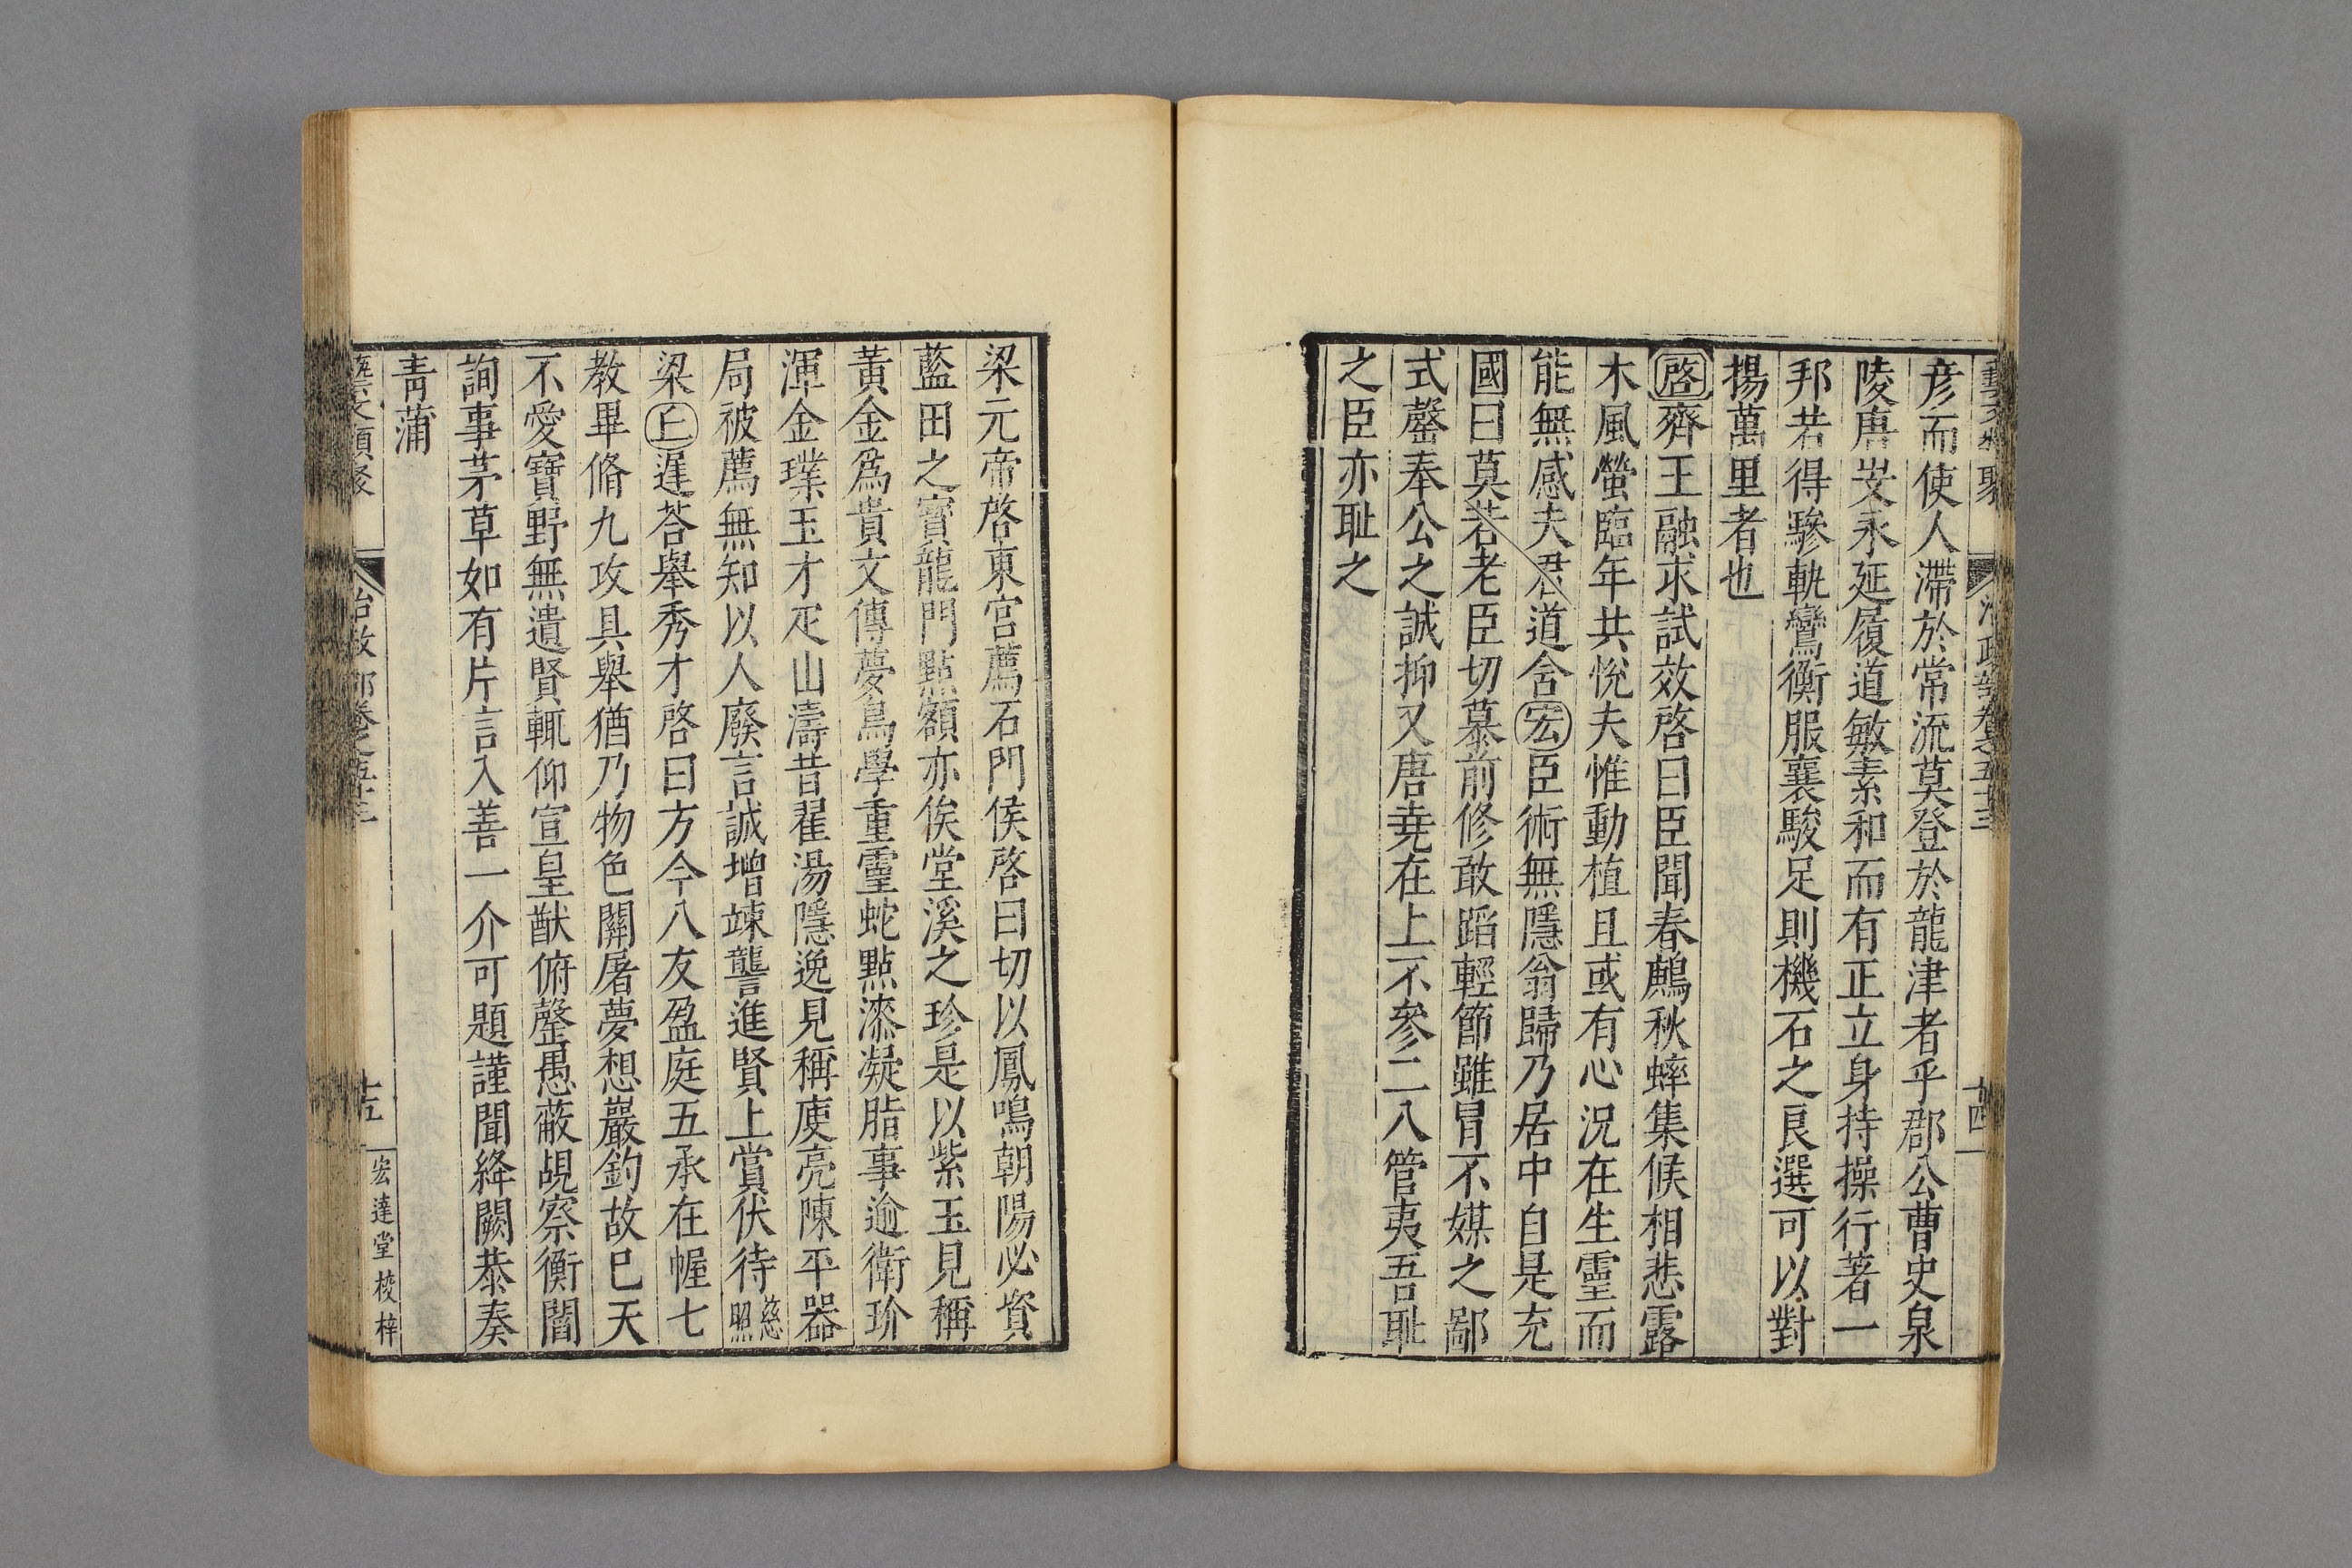 藝文類聚 治政部卷之五十三 十四
彦而使人滯於常流莫登於龍津者乎郡公曹史泉
陵唐妛永延履道敏素和而有正立身持操行著一
邦若得驂軌鸞衡服襄駿足則機石之良選可以對
揚萬里者也
啓齊王融求試效啓曰臣聞春鷓秋蟀集候相悲露
木風螢臨年共悅夫惟動植且或有心況在生靈而
能無感夫君道含宏臣術無隱翁歸乃居中自是充
國曰莫若老臣切慕前修敢蹈輕節雖冒不媒之鄙
式罄奉公之誠抑又唐堯在上不參二八管夷吾耻
之臣亦耻之
梁元帝啓東宮薦石門侯啓曰切以鳳鳴朝陽必資
藍田之寶龍門點額亦俟堂溪之珍是以紫玉見稱
黃金爲貴文傳夢鳥學重靈蛇點漆凝脂事逾衛玠
渾金璞玉才疋山濤昔翟湯隱逸見稱庾亮陳平器
局被薦無知以人廢言誠增竦讋進賢上賞伏待慈照
梁上遲荅舉秀才啓曰方今八友盈庭五承在幄七
教畢脩九攻具舉猶乃物色關屠夢想巖釣故巳天
不愛寶野無遺賢輒仰宣皇猷俯罄愚蔽覘察衡閭
詢事茅草如有片言入善一介可題謹聞絳闕恭奏
青蒲
藝文類聚 治政部卷之五十三 十五 宏達堂校梓